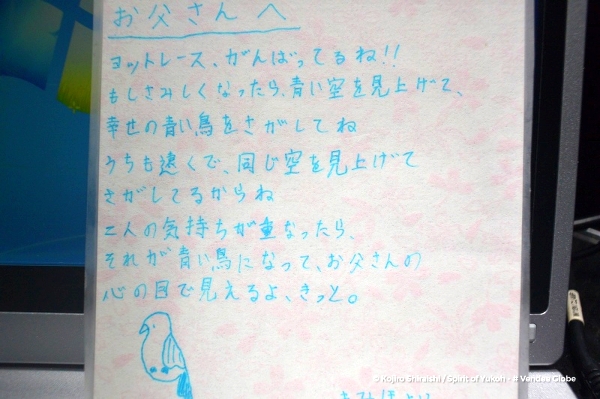 お父さんへ
ヨットレース、がんばってるね!!
もしさみしくなったら、青い空を見上げて、
幸せの青い鳥をさがしてね
うちも遠くで、同じ空を見上げて
さがしてるからね
二人の気持ちが重なったら、
それが青い鳥になって、お父さんの
心の目で見えるよ、きっと。
© Kojiro Shiraishi / Spirit of Yukoh - # Vendée Globe